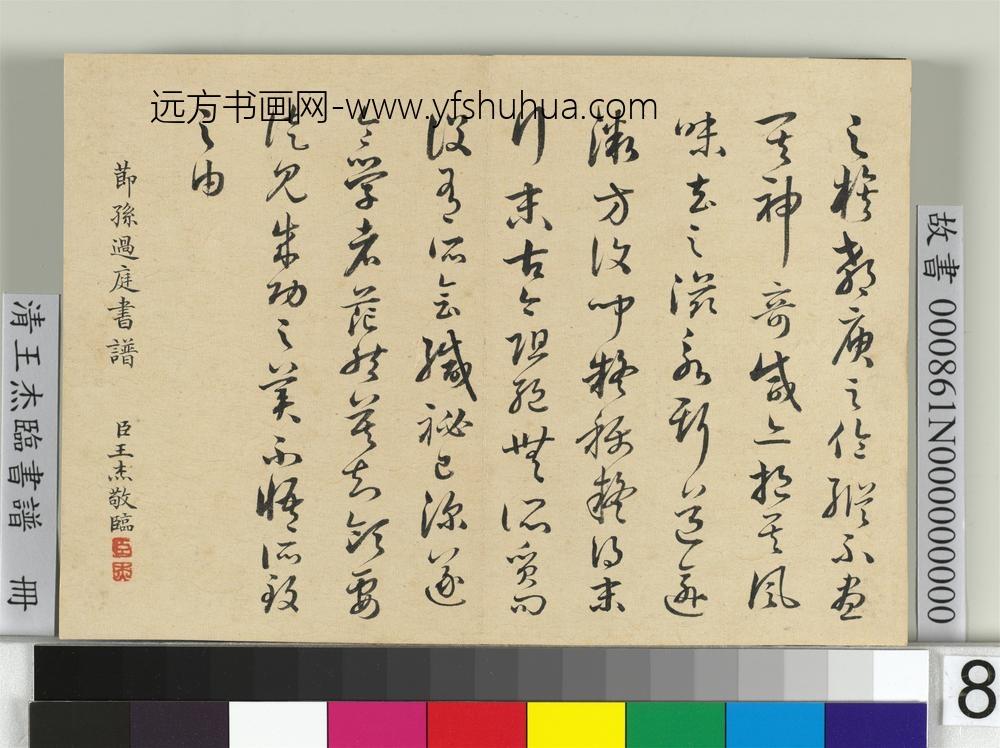 远方书画网-www.yfshuhua.com
之族郗庾之倫縱不盡
其神奇咸亦挹其風
味去之滋永斯道逾
微方復聞疑稱疑得末
行末古今阻絕無所質問
設有所會緘祕已深遂
令學者茫然莫知領要
徒見成功之美不悟所致
之由
莭孫過庭書譜 臣王杰敬臨
臣 杰
故書 000861N000000000
清王杰臨書譜 冊
8